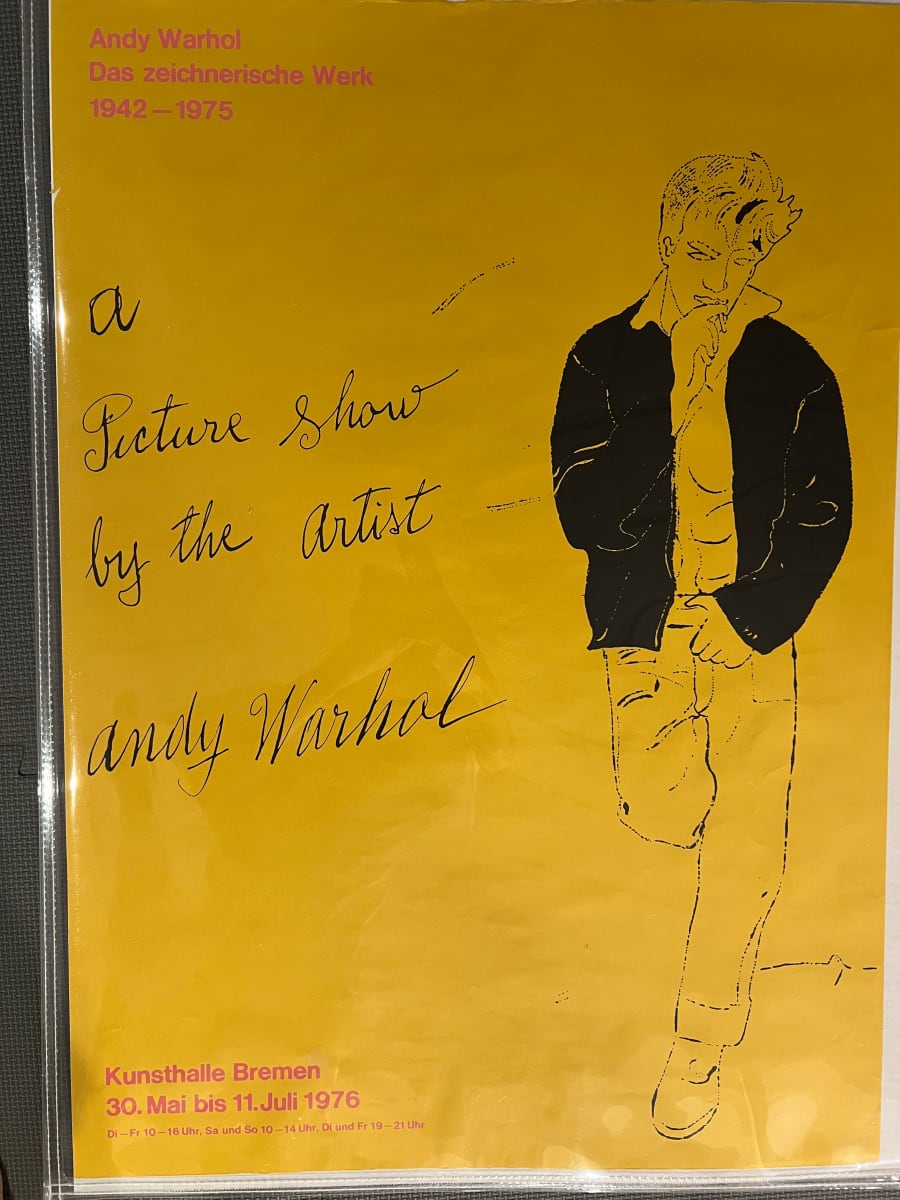 Andy Warhol
Das zeichnerische Werk
1942 – 1975
a
Picture show
by the artist
andy Warhol
Kunsthalle Bremen
30. Mai bis 11. Juli 1976
Di – Fr 10 – 16 Uhr, Sa und So 10 – 14 Uhr, Di und Fr 19 – 21 Uhr